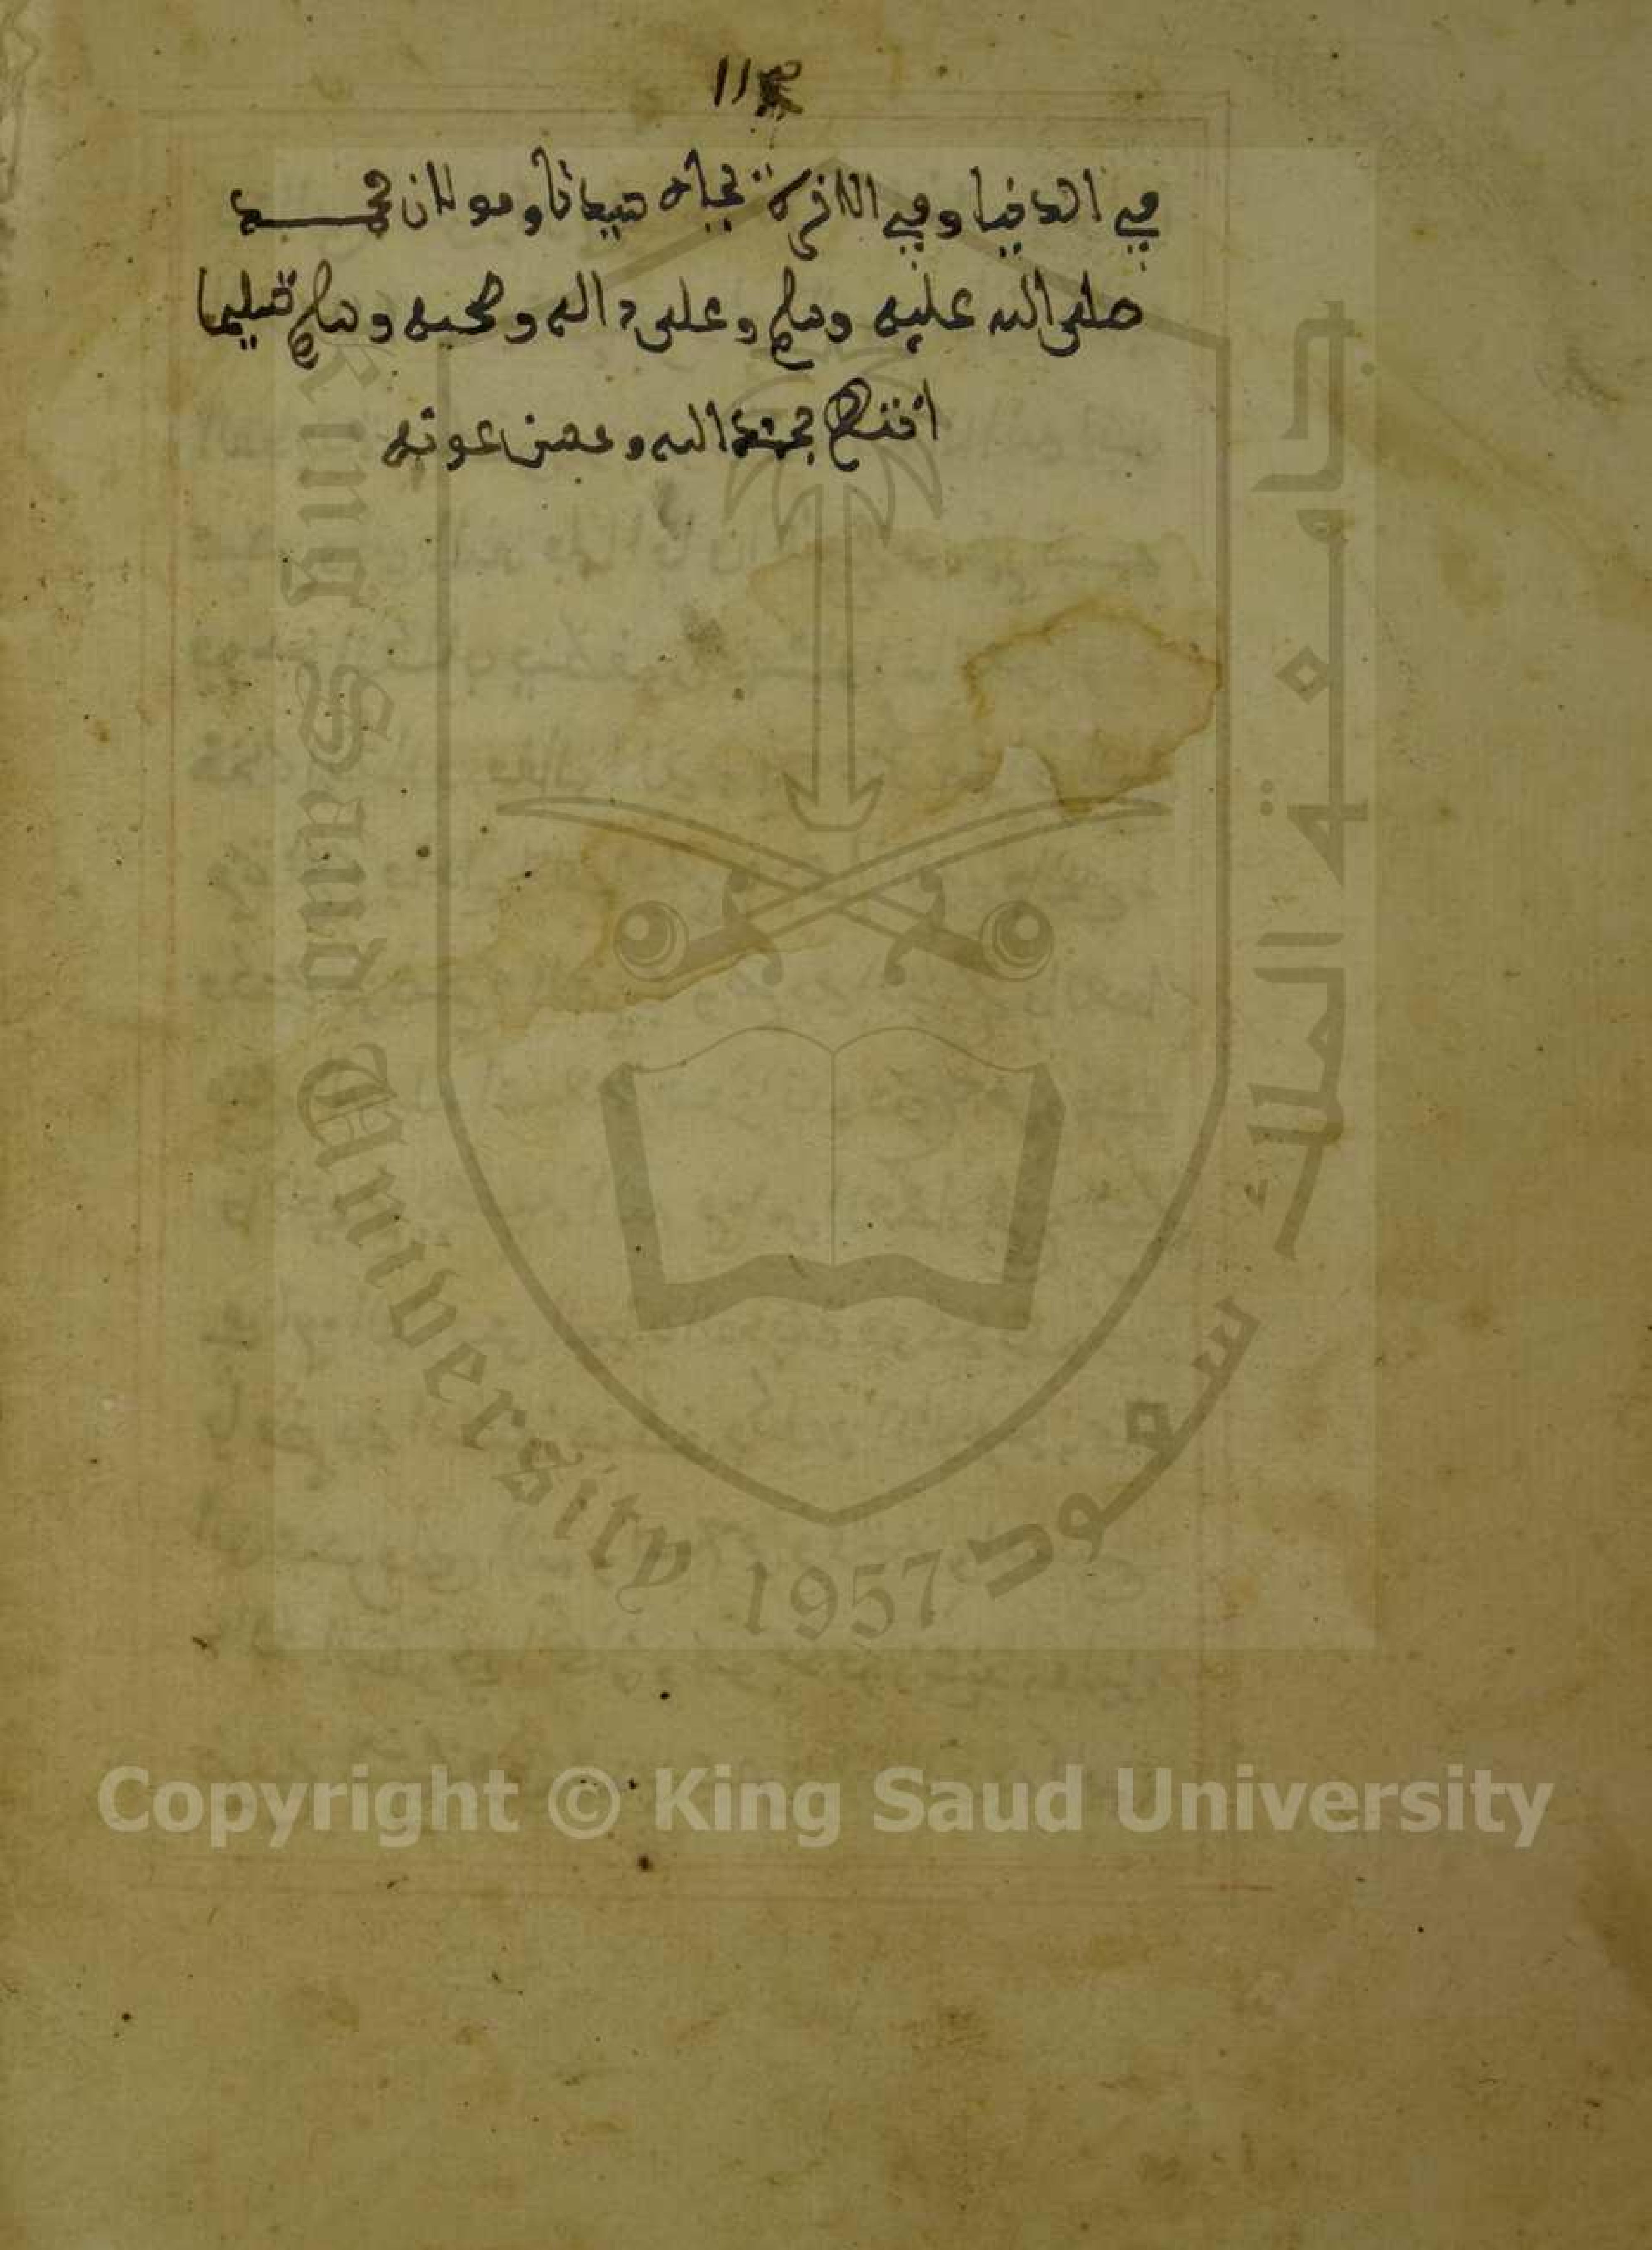 في الدنيا وفي الاخرة بجاه سيدنا ومولان محمد
صلى الله عليه وسلم وعلى ءاله وصحبه وسلم تسليما
انتهى بحمد الله وحسن عونه
جامعة الملك سعود
King Saud University 1957
Copyright © King Saud University